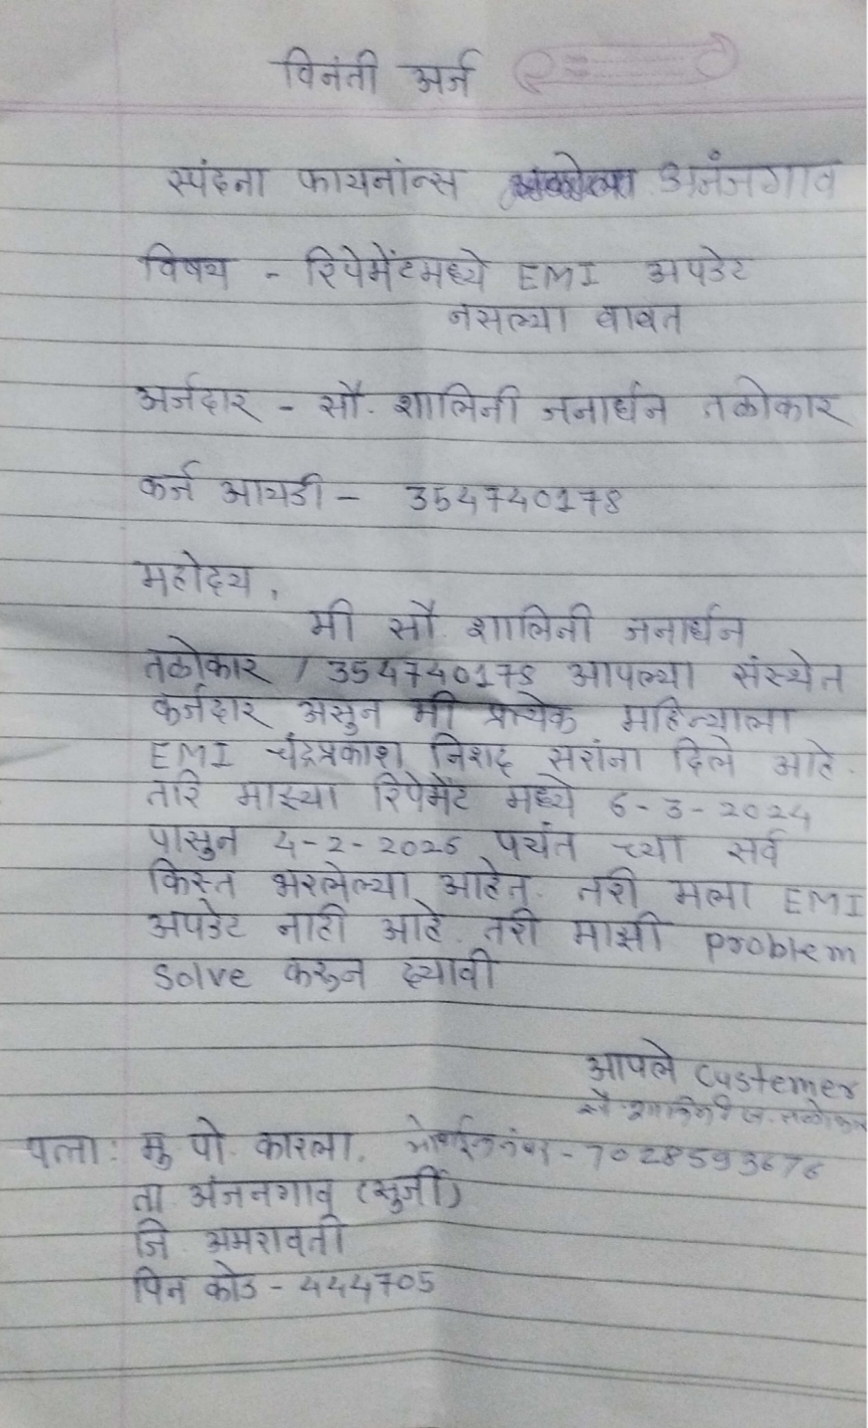 विनंती अर्ज
स्पंदना फायनांन्स अनंजगाव
विषय - रिपेमेंटमध्ये EMI अपडेट
नसल्या बाबत
अर्जदार - सौ. शालिनी जनार्धन तळोकार
कर्ज आयडी - 354740178
महोदय,
मी सौ. शालिनी जनार्धन
तळोकार / 354740178 आपल्या संस्थेत
कर्जदार असुन मी प्रत्येक महिन्याला
EMI चंद्रप्रकाश निशद सरांना दिले आहे.
तरि माझ्या रिपेमेंट मध्ये 6-3-2024
पासुन 4-2-2026 पर्यंत च्या सर्व
किस्त भरलेल्या आहेत. तरी मला EMI
अपडेट नाही आहे. तरी माझी problem
solve करून द्यावी
आपले customer
सौ. शालिनी ज. तळोकार
पत्ता: मु पो. कारला. मोबाईल नंबर - 7028593676
ता. अंजनगाव (सुर्जी)
जि. अमरावती
पिन कोड - 444705